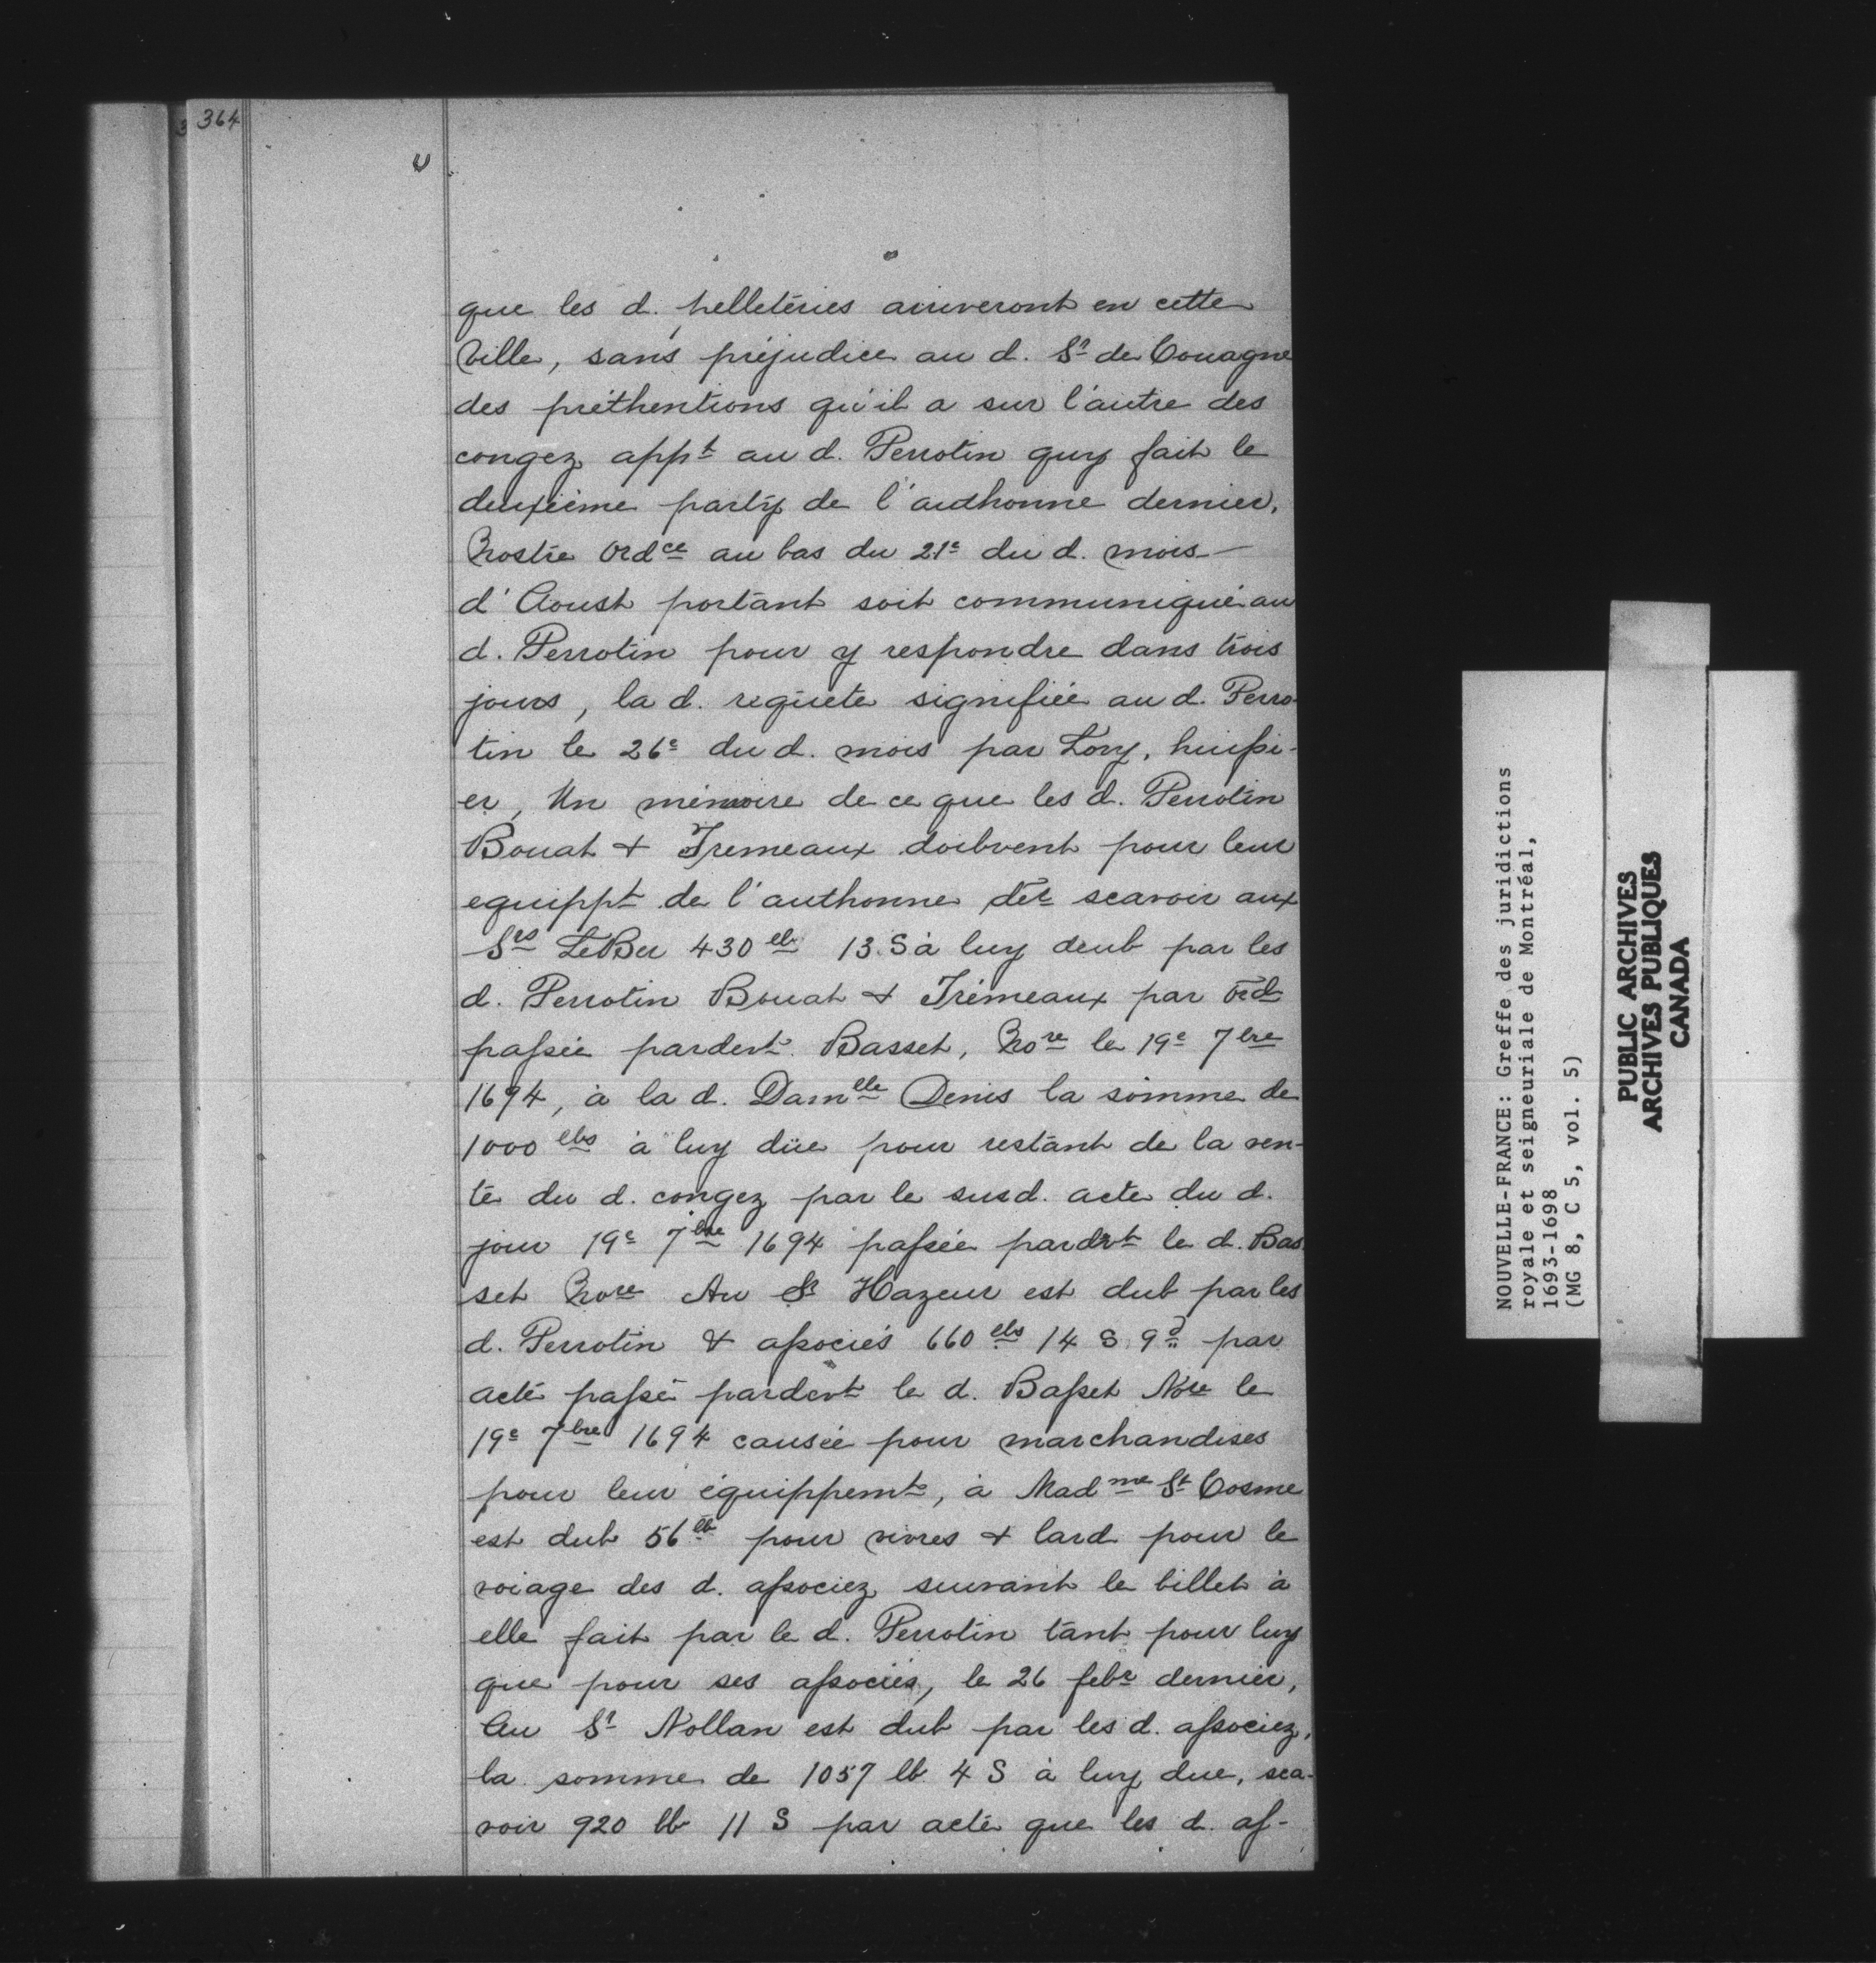 364
que les d. pelletéries arriveront en cette
Ville, sans préjudice au d. Sr de Couagne
des préthentions qu'il a sur l'autre des
congez appt au d. Perrotin quy fait le
deuxième party de l'authonne dernier,
Nostre Ordce au bas du 21e du d. mois
d'Aoust portant soit communiqué au
d. Perrotin pour y respondre dans trois
jours, la d. requete signifiée au d. Perro-
tin le 26e du d. mois par Lory, huissi-
er, Un mémoire de ce que les d. Perrotin
Bouat & Tremeaux doibvent pour leur
equippt de l'authonne der scavoir aux
Srs LeBer 430 lb 13 S à luy deub par les
d. Perrotin Bouat & Trémeaux par
passée pardevt Basset, Nore le 19e 7bre
1694, à la d. Damlle Denis la somme de
1000 lbs à luy düe pour restant de la ven-
te du d. congez par le susd. acte du d.
jour 19e 7bre 1694 passée pardvt le d. Bas-
set Nore Au Sr Hazeur est dub par les
d. Perrotin & associés 660 lbs 14 S 9d par
acte passé pardevt le d. Basset Nore le
19e 7bre 1694 causée pour marchandises
pour leur équippemt, à Madme St Cosme
est dub 56 lb pour vivres & lard pour le
voiage des d. associez suivant le billet à
elle fait par le d. Perrotin tant pour luy
que pour ses associés, le 26 febr dernier,
Au Sr Nollan est dub par les d. associez,
la somme de 1057 lb 4 S à luy due, sca-
voir 920 lb 11 S par acte que les d. as-
NOUVELLE-FRANCE: Greffe des juridictions
royale et seigneuriale de Montréal,
1693-1698
(MG 8, C 5, vol. 5)
PUBLIC ARCHIVES
ARCHIVES PUBLIQUES
CANADA